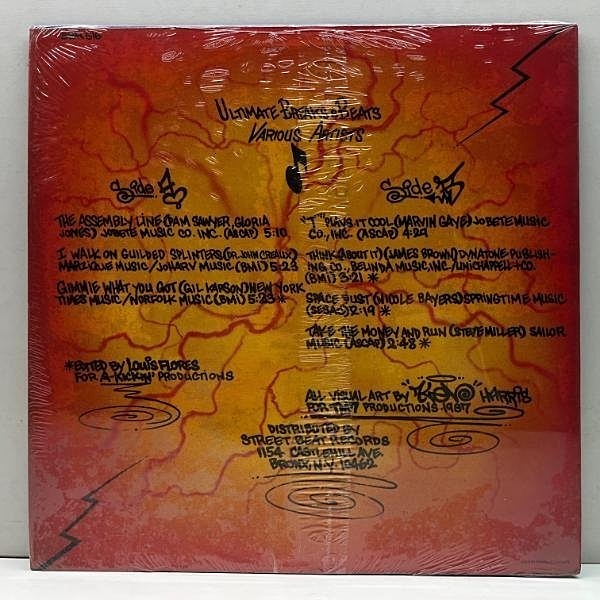 ULTIMATE BREAKS & BEATS
VARIOUS ARTISTS
Side A
THE ASSEMBLY LINE (PAM SAWYER, GLORIA
JONES) JOBETE MUSIC CO. INC. (ASCAP) 5:10
I WALK ON GUILDED SPLINTERS (DR. JOHN CREAUX)
MARZIQUE MUSIC/JOHARV MUSIC (BMI) 5:23
GIMMIE WHAT YOU GOT (GIL KARSON) NEW YORK
TIMES MUSIC/NORFOLK MUSIC (BMI) 5:23 *
*EDITED BY LOUIS FLORES
FOR A-KICKIN' PRODUCTIONS
Side B
"T" PLAYS IT COOL (MARVIN GAYE) JOBETE MUSIC
CO., INC. (ASCAP) 4:29
THINK (ABOUT IT) (JAMES BROWN) DYNATONE PUBLISH-
ING CO., BELINDA MUSIC, INC./UNICHAPPELL + CO.
(BMI) 3:21 *
SPACE DUST (NICOLE BAYERS) SPRINGTIME MUSIC
(SESAC) 2:19 *
TAKE THE MONEY AND RUN (STEVE MILLER) SAILOR
MUSIC (ASCAP) 2:48 *
ALL VISUAL ART BY "KEVO" HARRIS
FOR PRODUCTIONS 1987
DISTRIBUTED BY
STREET BEAT RECORDS
1154 CASTLEHILL AVE.
BRONX, N.Y. 10462